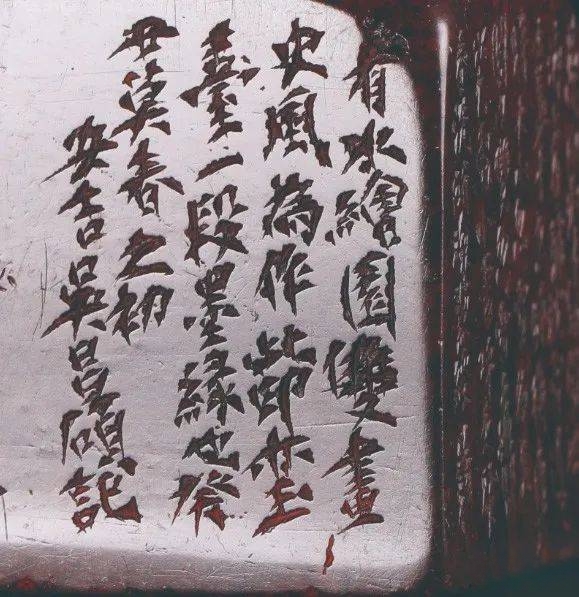 有水繪園雙畫
史風為作此印埜
臺一段墨緣也癸
丑莫春之初
安吉吳昌碩記